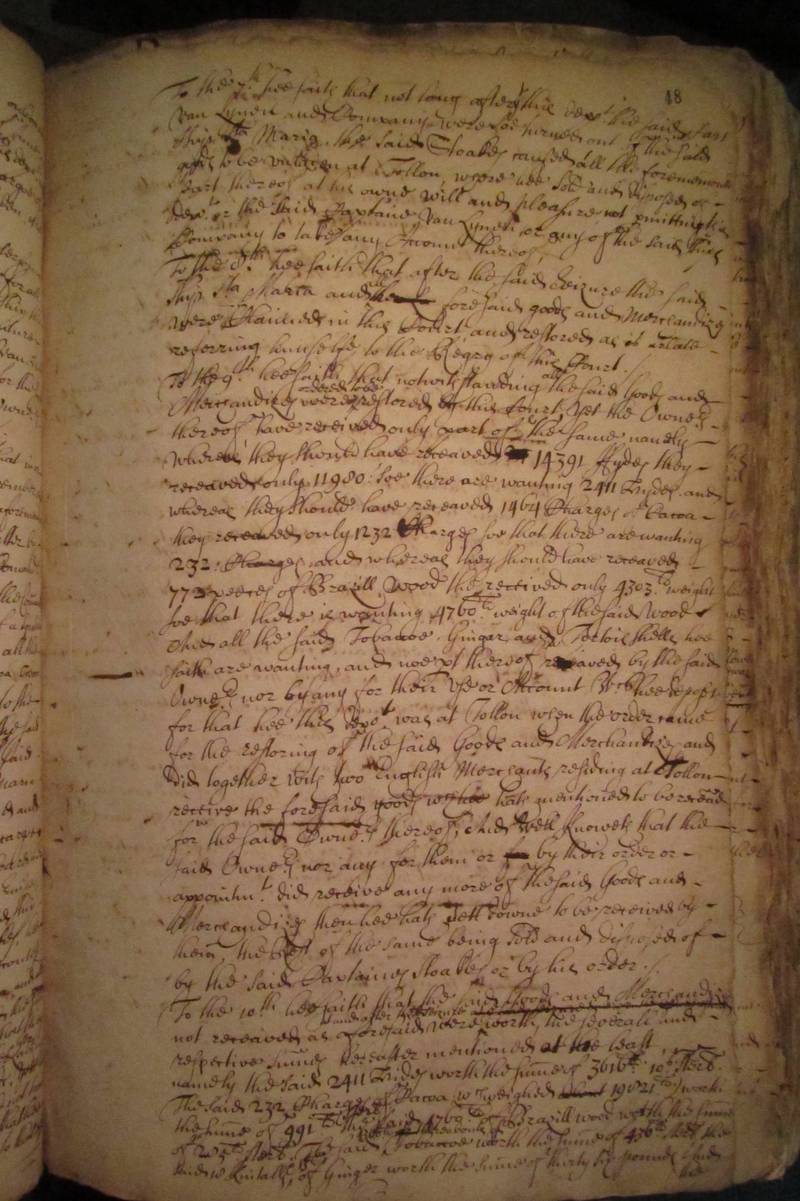 48
To the 7th hee saith that not long after this depot the said Captaine
Van Lynen and Company were soe turned out of the said
ship Sta Maria, the said Stoakes caused all the forementioned
goods to be at Tollon, were hee sold and disposed of
part thereof at his owne will and pleasure not permitting this
depot or the said Captaine Van Lynen or any of the said ships
Company to take any Accompt thereof,
To the 8th hee saith that after the said seizure the said
ship Sta Maria and the foresaid goods and Merchandizes
were Claimed in this Court, and restored as is
referring himselfe to the Registry of this Court.
To the 9th hee saith that notwithstanding all the said Goods and
Merchandizes were ordered to be restored by this Court, Yet the Owners
thereof have received only part of the same namely
whereas they should have receaved 14391 Hydes they
receaved only 11980: soe there are wanting 2411 Hydes and
whereas they should have receaved 1464 Charges of Cacoa
they receaved only 1232 Charges soe that there are wanting
232 Charges, and whereas they should have receaved
773 peeces of Brazill Wood they received only 4303 weight
soe that there is wanting 4760 weight of the said Wood
And all the said Tobaccoe, Ginger, and Tortois shells hee
saith are wanting, and noe part thereof receaved by the said
Owners nor by any for their Use or Account Wch hee deposeth
for that hee this depot was at Tollon when the order came
for the restoring of the said Goods and Merchandizes and
did together with two English Merchants residing at Tollon
receive the foresaid goods hath mentioned to be receaved
for the said Owners thereof, And well knoweth that the
said Owners nor any for them or by their order or
appointmt did receive any more of the said Goods and
Merchandizes then hee hath sett downe to be received by
them, the rest of the same being sold and disposed of
by the said Captaine Stoakes or by his order.
To the 10th hee saith that the said Goods and Merchandizes
not receaved as aforesaid were worth the severall and
respective summes hereafter mentioned at the least,
namely the said 2411 Hydes worth the summe of 3616 10s sterl.
The said 232 Charges of Cacoa, wch weighed 19821 worth
the summe of 991 the said 4760 of Brazill wood worth the summe
of sterl. The said Tobaccoe worth the summe of 436 sterl. the
said Kintalls of Ginger worth the summe of thirty six pounds And
the